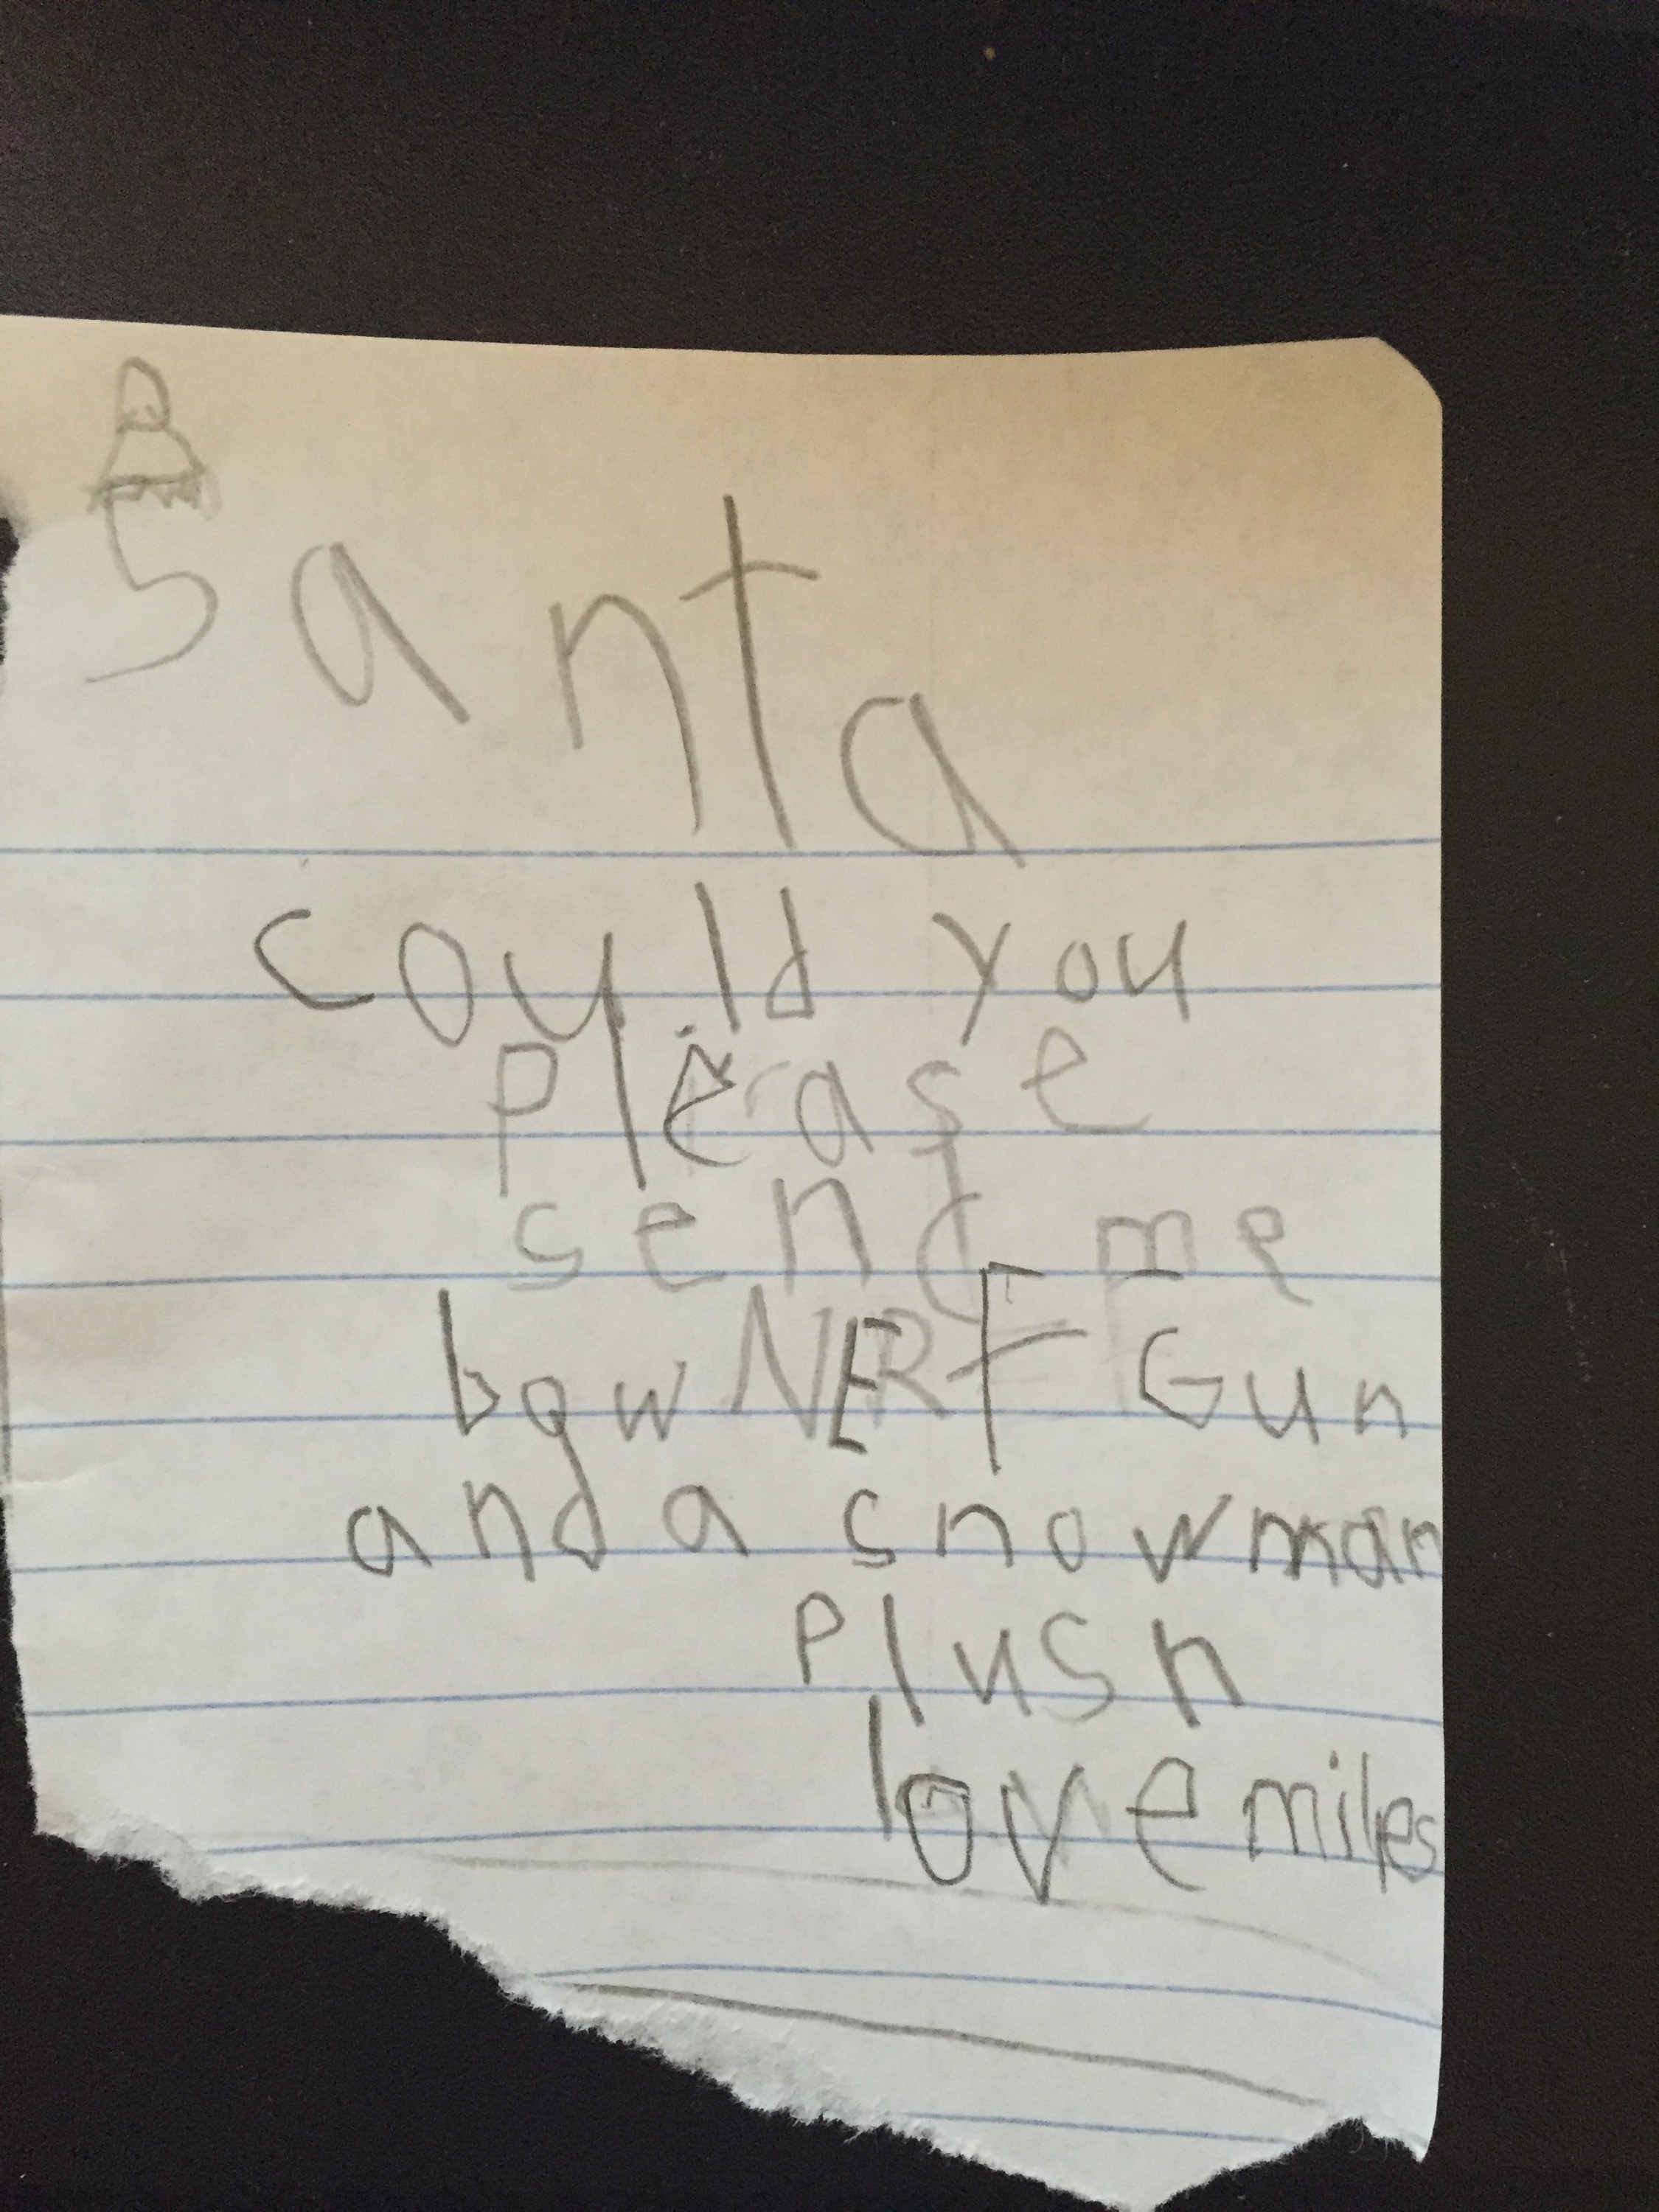 Santa
could you
please
send me
bow NERF Gun
and a snowman
plush
love miles